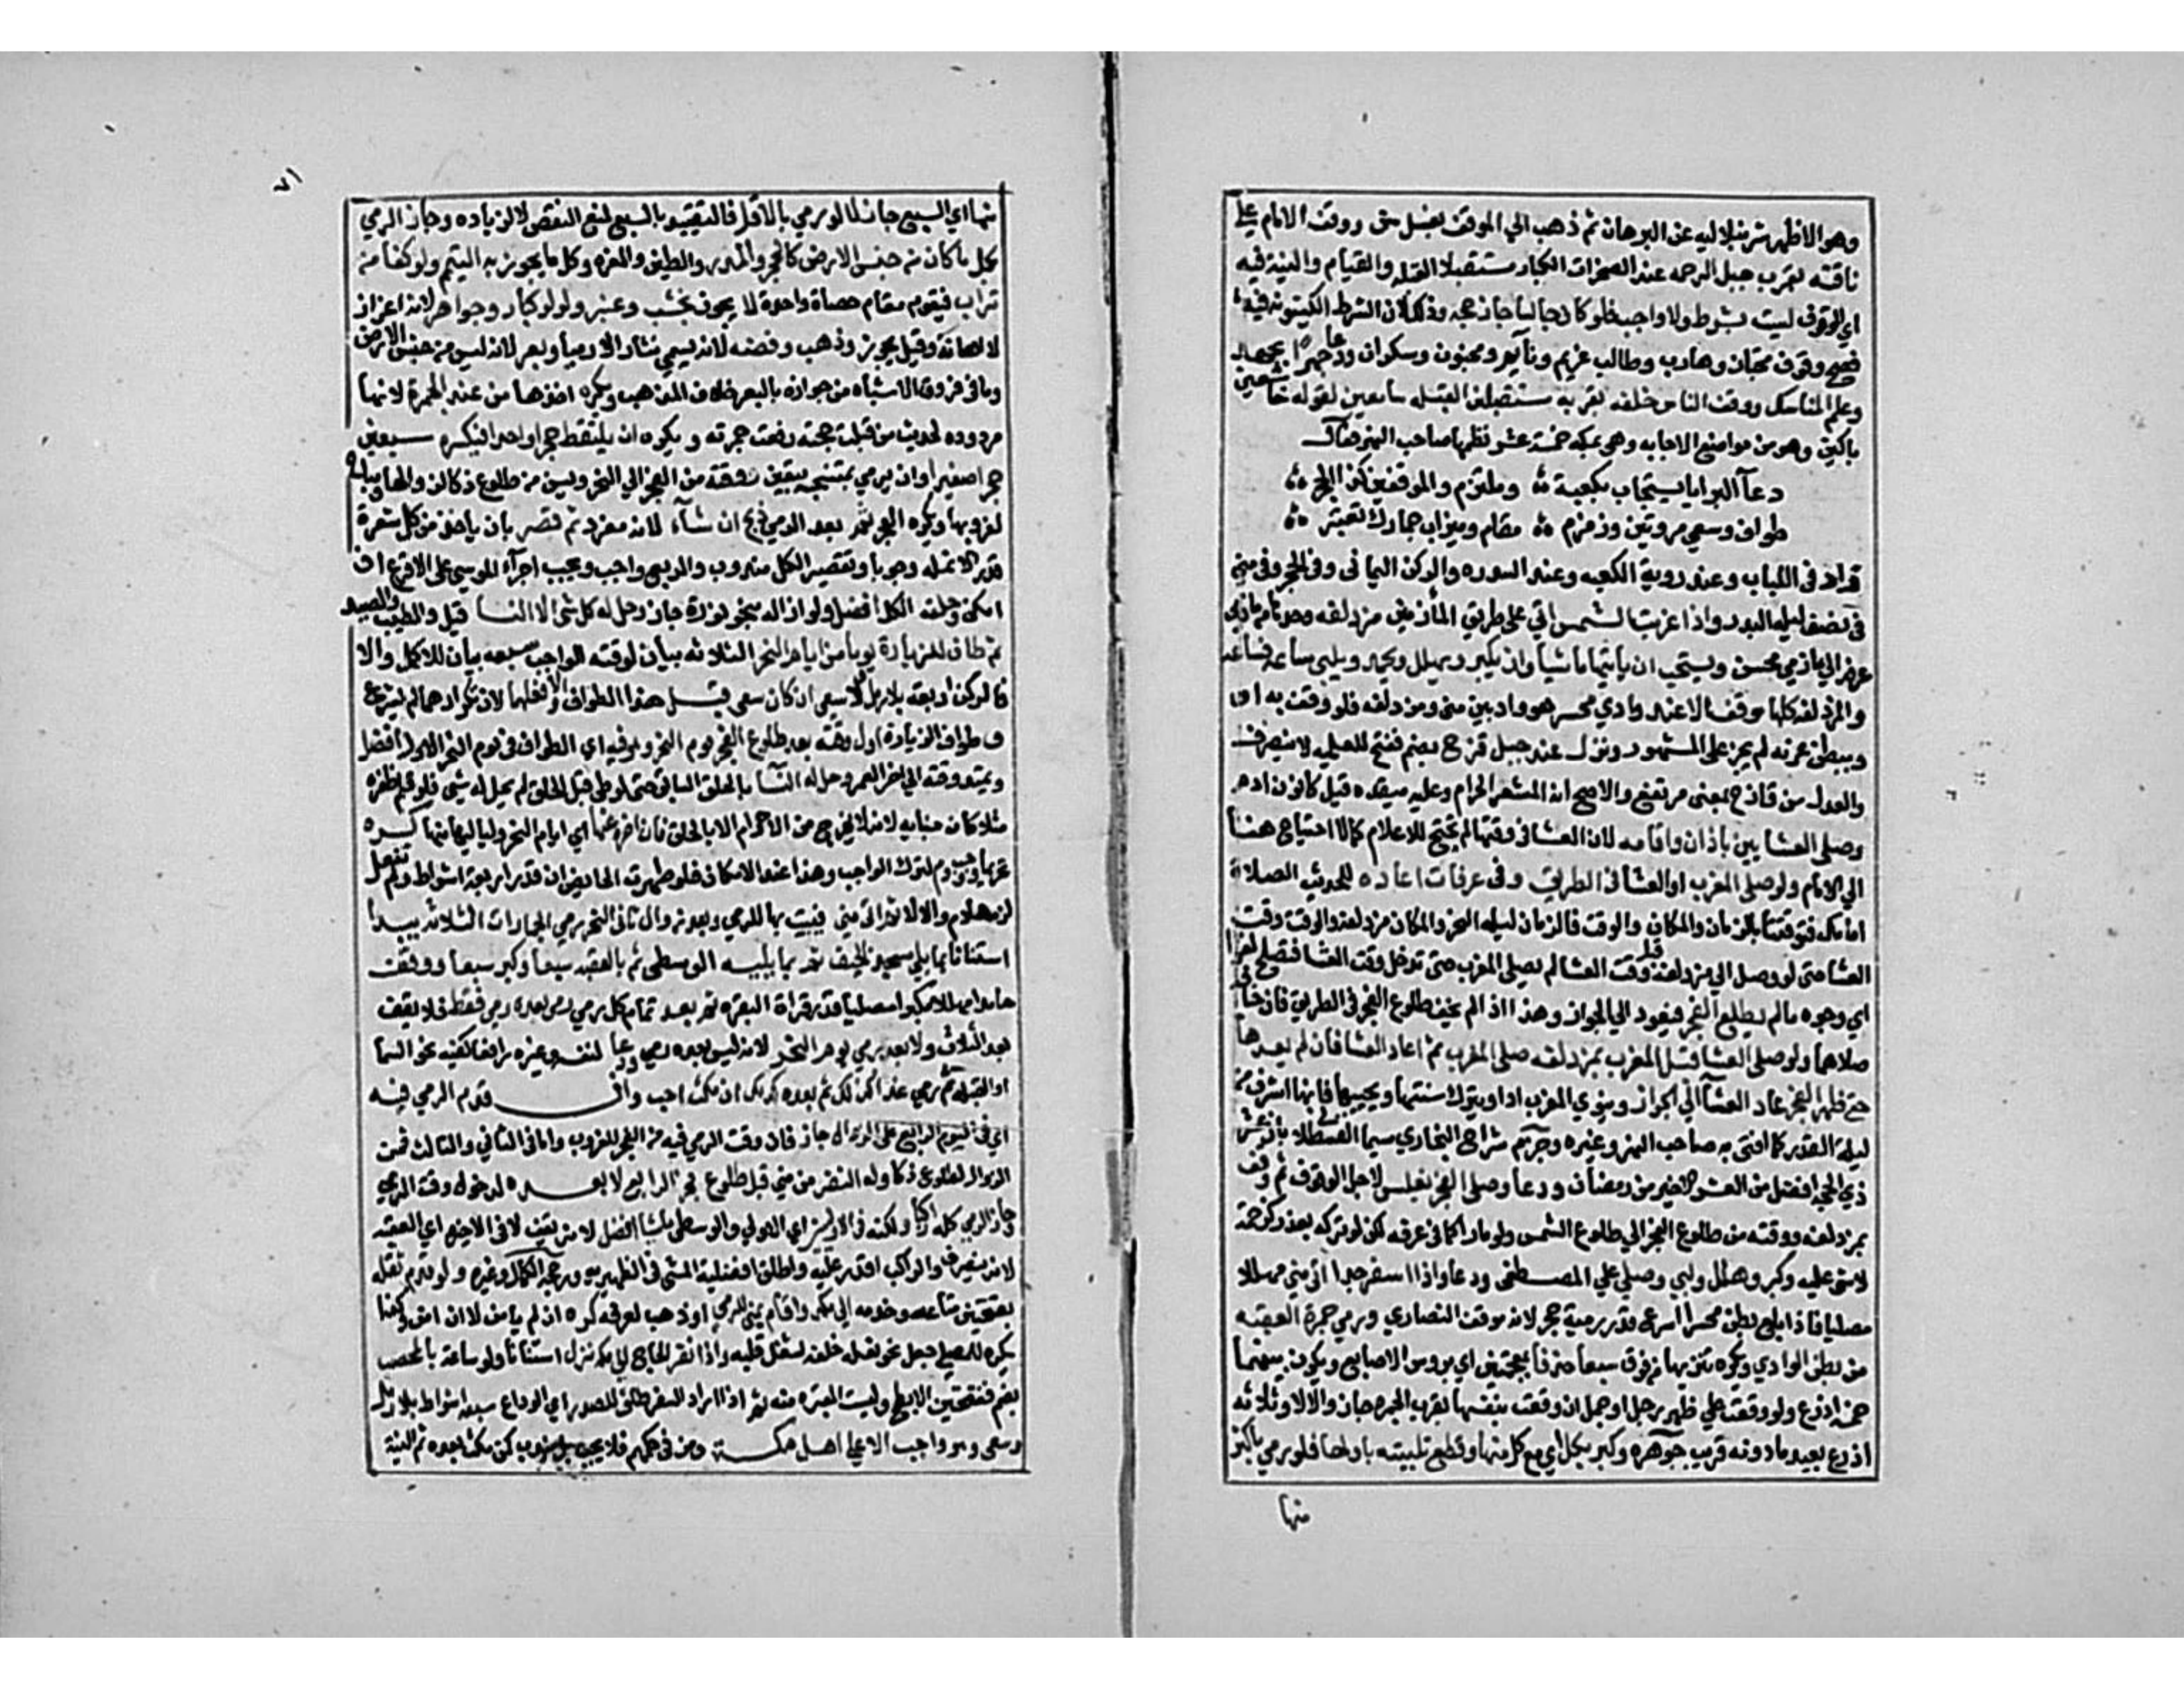 وهو الاظهر شرنبلاليه عن البرهان ثم ذهب الي الموقف بغسل سن ووقف الامام علي
ناقته بقرب جبل الرحمه عند الصخرات الكبار مستقبلا القبله والقيام والنية فيه
اي الوقوف ليست بشرط ولا واجب فلو كان جالسا جاز حجه وذلك لان الشرط الكينونه فيه
فصح وقوف مجتاز وهارب وطالب غريم ونائم ومجنون وسكران ودعا جهرا بجهد
وعلم المناسك ووقف الناس خلفه بقربه مستقبلين القبله سامعين لقوله خاشعين
باكين وهو من مواضع الاجابه وهي بمكه خمسة عشر نظمها صاحب النهر فقال
دعآ البرايا يستجاب بكعبة وملتزم والموقفين كذا الحجر
طواف وسعي مروتين وزمزم مقام وميزاب جمارك تعتبر
زاد في اللباب وعند روية الكعبه وعند السدره والركن اليماني وفي الحجر وفي مني
في نصف ليله البدر واذا غربت الشمس اتي علي طريق المأزمين مزدلفه وحدها من مازمي
عرفه الي مازمي محسر ويستحب ان يأتيها ماشيا وان يكبر ويهلل ويحمد ويلبي ساعة فساعه
والمزدلفه كلها موقف الا عند وادي محسر هو واد بين مني ومزدلفه فلو وقف به او
ببطن عرنه لم يجز علي المشهور ونزل عند جبل قزح بضم ففتح للعلميه لا ينصرف
والعدل من قازح بمعني مرتفع والاصح انه المشعر الحرام وعليه ميقده قيل كانون ادم
وصلي العشايين باذان واقامه لان العشا في وقتها لم تحتج للاعلام كما لا احتياج هنا
الي الامام ولو صلي المغرب او العشا في الطريق وفي عرفات اعاده للحديث الصلاة
امامك فتوقتتا بالزمان والمكان والوقت فالزمان ليله النحر والمكان مزدلفه والوقت وقت
العشا حتي لو وصل الي مزدلفه قبل وقت العشا لم يصلي المغرب حتي تدخل وقت العشا فتصلح لغزا
اي وجوه ما لم يطلع الفجر فيعود الي الجواز وهذا اذا لم يخف طلوع الفجر في الطريق فان خاف
صلاهما ولو صلي العشا قبل المغرب بمزدلفه صلي المغرب ثم اعاد العشا فان لم يعدها
حتي ظهر الفجر عاد العشآ الي الجواز وينوي المغرب ادا ويترك سنتها ويحييها فانها اشرف من
ليلة القدر كما افتي به صاحب النهر وغيره وجزم شراح البخاري سيما القسطلاني بان عشر
ذي الحجه افضل من العشر الاخير من رمضان ودعا وصلي الفجر بغلس لاجل الوقوف ثم وقف
بمزدلفه ووقته من طلوع الفجر الي طلوع الشمس ولو مارا كما في عرفه لكن لو تركه بعذر كزحمة
لا شي عليه وكبر وهلل ولبي وصلي علي المصطفي ودعا واذا اسفر جدا اتي مني مهللا
مصليا فاذا بلغ بطن محسر اسرع قدر رمية حجر لانه موقف النصاري ورمي جمرة العقبه
من بطن الوادي وكره تنزيها من فوق سبعا خذفا بمعجمتين اي بروس الاصابع ويكون بينهما
خمسة اذرع ولو وقعت علي ظهر رجل او جمل ان وقعت بنفسها بقرب الجمره جاز والا لا وثلاثه
اذرع بعيد وما دونه قريب جوهره وكبر بكل اي مع كل منها وقطع تلبيته باولها فلو رمي باكثر
منها
٧١
منها اي السبع جاز لا لو رمي بالاقل فالتقييد بالسبع لمنع النقص لا الزياده وجاز الرمي
بكل ما كان من جنس الارض كالحجر والمدر والطين والمغره وكل ما يجوز به التيمم ولو كفا من
تراب فيقوم مقام حصاة واحدة لا يجوز بخشب وعنبر ولولو كبار وجواهر لانه اعزاز
لا اهانة وقيل يجوز وذهب وفضه لانه يسمي نثارا لا رميا وبعر لانه ليس من جنس الارض
وما في فروق الاشباه من جوازه بالبعر خلاف المذهب ويكره اخذها من عند الجمرة لانها
مردوده لحديث من قبلت حجته رفعت جمرته ويكره ان يلتقط حجرا واحدا فيكسره سبعين
حجرا صغيرا وان يرمي بمتنجسه بيقين ووقته من الفجر الي الفجر ويسن من طلوع ذكا لزوالها ويباح
لغروبها ويكره للفجر ثم بعد الرمي ذبح ان شاء لانه مفرد ثم قصر بان ياخذ من كل شعرة
قدر الانمله وجوبا وتقصير الكل مندوب والربع واجب ويجب اجرآء الموسي علي الاقرع ان
امكن وحلقه الكل افضل ولو ازاله بنحو نورة جاز وحل له كل شي الا النسا قيل والطيب والصيد
ثم طاف للزيارة يوما من ايام النحر الثلاثه بيان لوقته الواجب سبعه بيان للاكمل والا
فالركن اربعه بلا رمل ولا سعي ان كان سعي قبل هذا الطواف والا فعلهما لان تكرارهما لم يشرع
وطواف الزيارة اول وقته بعد طلوع الفجر يوم النحر وهو فيه اي الطواف في يوم النحر الاول افضل
ويمتد وقته الي اخر العمر وحل له النسآ بالحلق السابق حتي لو طاف قبل الحلق لم يحل له شي فلو قلم ظفره
مثلا كان جنايه لانه لا يخرج من الاحرام الا بالحلق فان اخره عنها اي ايام النحر ولياليها منها كره
تحريما ووجب دم لترك الواجب وهذا عند الامكان فلو طهرت الحايض ان قدر اربعة اشواط ولم تفعل
لزمها دم والا لا ثم اتي مني فيبيت بها للرمي وبعد زوال ثاني النحر رمي الجمارات الثلاث يبدا
استنانا بما يلي مسجد الخيف ثم بما يليه الوسطي ثم بالعقبه سبعا وكبر سبعا ووقف
حامدا مهللا مكبرا مصليا قدر قراة البقره ثم بعد تمام كل رمي بعده رمي فقط فلا يقف
بعد الثلاث ولا بعد رمي يوم النحر لانه ليس بعده رمي ودعا لنفسه وغيره رافعا كفيه نحو السما
او القبله ثم رمي غدا كذلك ثم بعده كذلك ان مكث احب وان قدم الرمي فيه
اي في اليوم الرابع علي الزوال جاز فان وقت الرمي فيه من الفجر للغروب واما في الثاني والثالث فمن
الزوال لطلوع ذكا وله النفر من مني قبل طلوع فجر الرابع لا بعده لدخول وقت الرمي
وجاز الرمي كله راكبا ولكنه في الاوليين اي الاولي والوسطي ماشيا افضل لانه يقف لا في الاخيره اي العقبه
لانه ينصرف والراكب اقدر عليه واطلق افضلية المشي في الظهيريه ورجحه الكمال وغيره ولو قدم ثقله
بفتحتين متاعه وخدمه الي مكه واقام بمني للرمي او ذهب لعرفه كره ان لم يامن لا ان امن وكذا
يكره للمصلي جعل نحو نعله خلفه لشغل قلبه واذا نفر الحاج الي مكه نزل استنانا ولو ساعة بالمحصب
بضم ففتحتين الابطح وليست المقبره منه ثم اذا اراد السفر طاف للصدر اي الوداع سبعة اشواط بلا رمل
وسعي وهو واجب الا علي اهل مكة ومن في حكمهم فلا يجب بل يندب كمن مكث بعده ثم النية